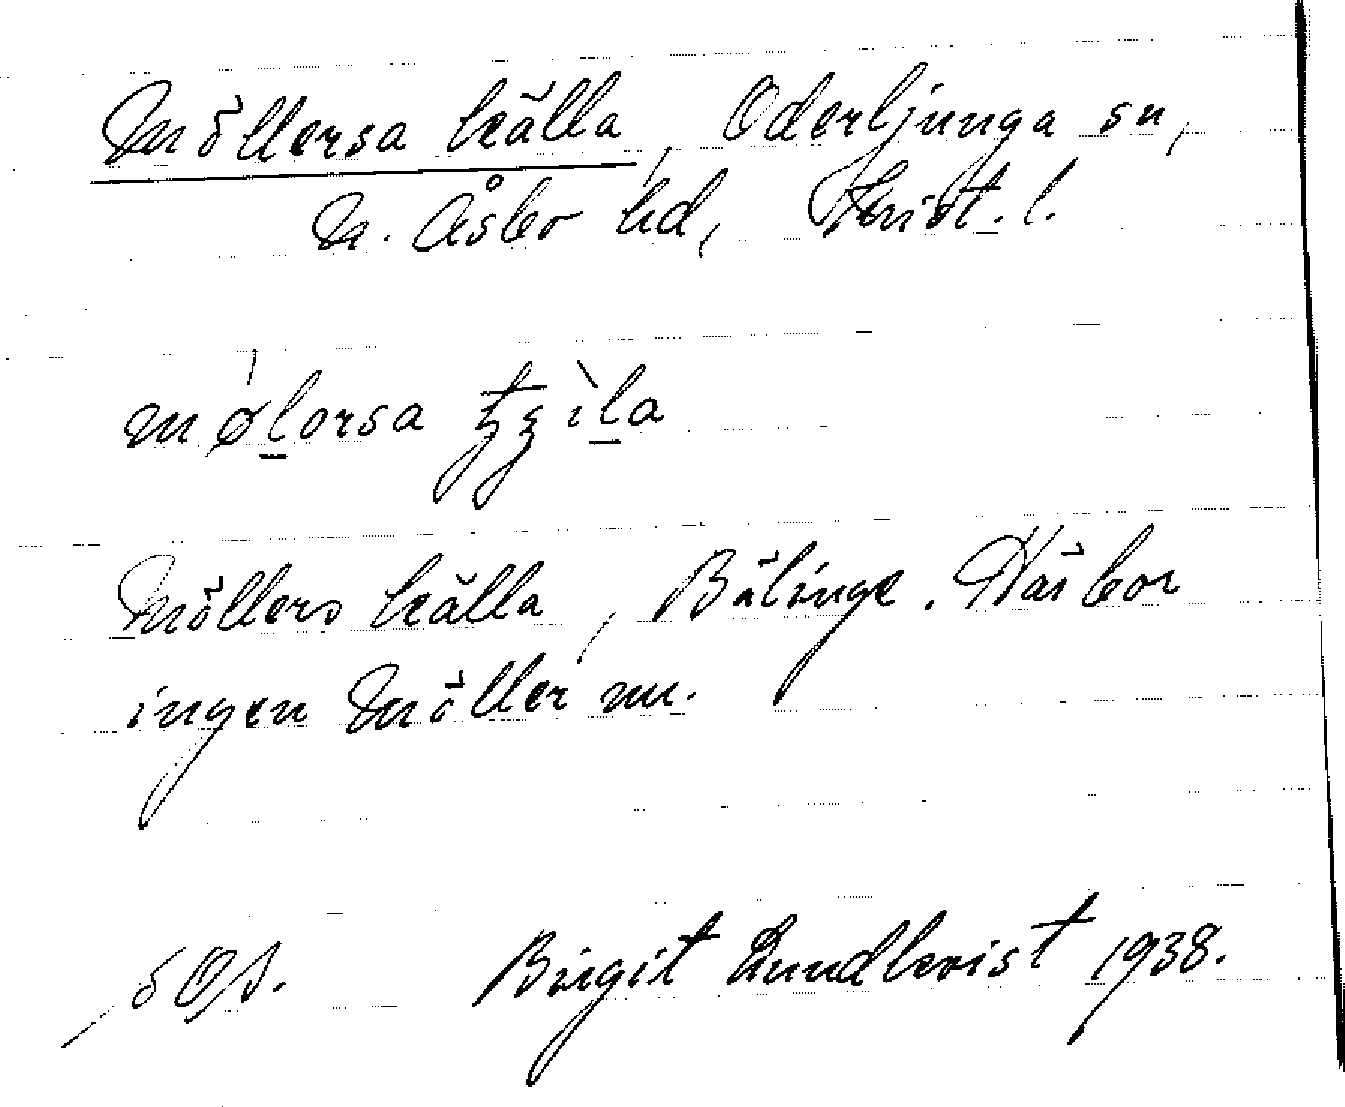 Möllersa källa, Oderljunga sn,
N. Åsbo hd, Krist. l.
Möllers källa, Bälinge. Här bor
ingen Möller nu.
Birgit Lundkvist 1938.